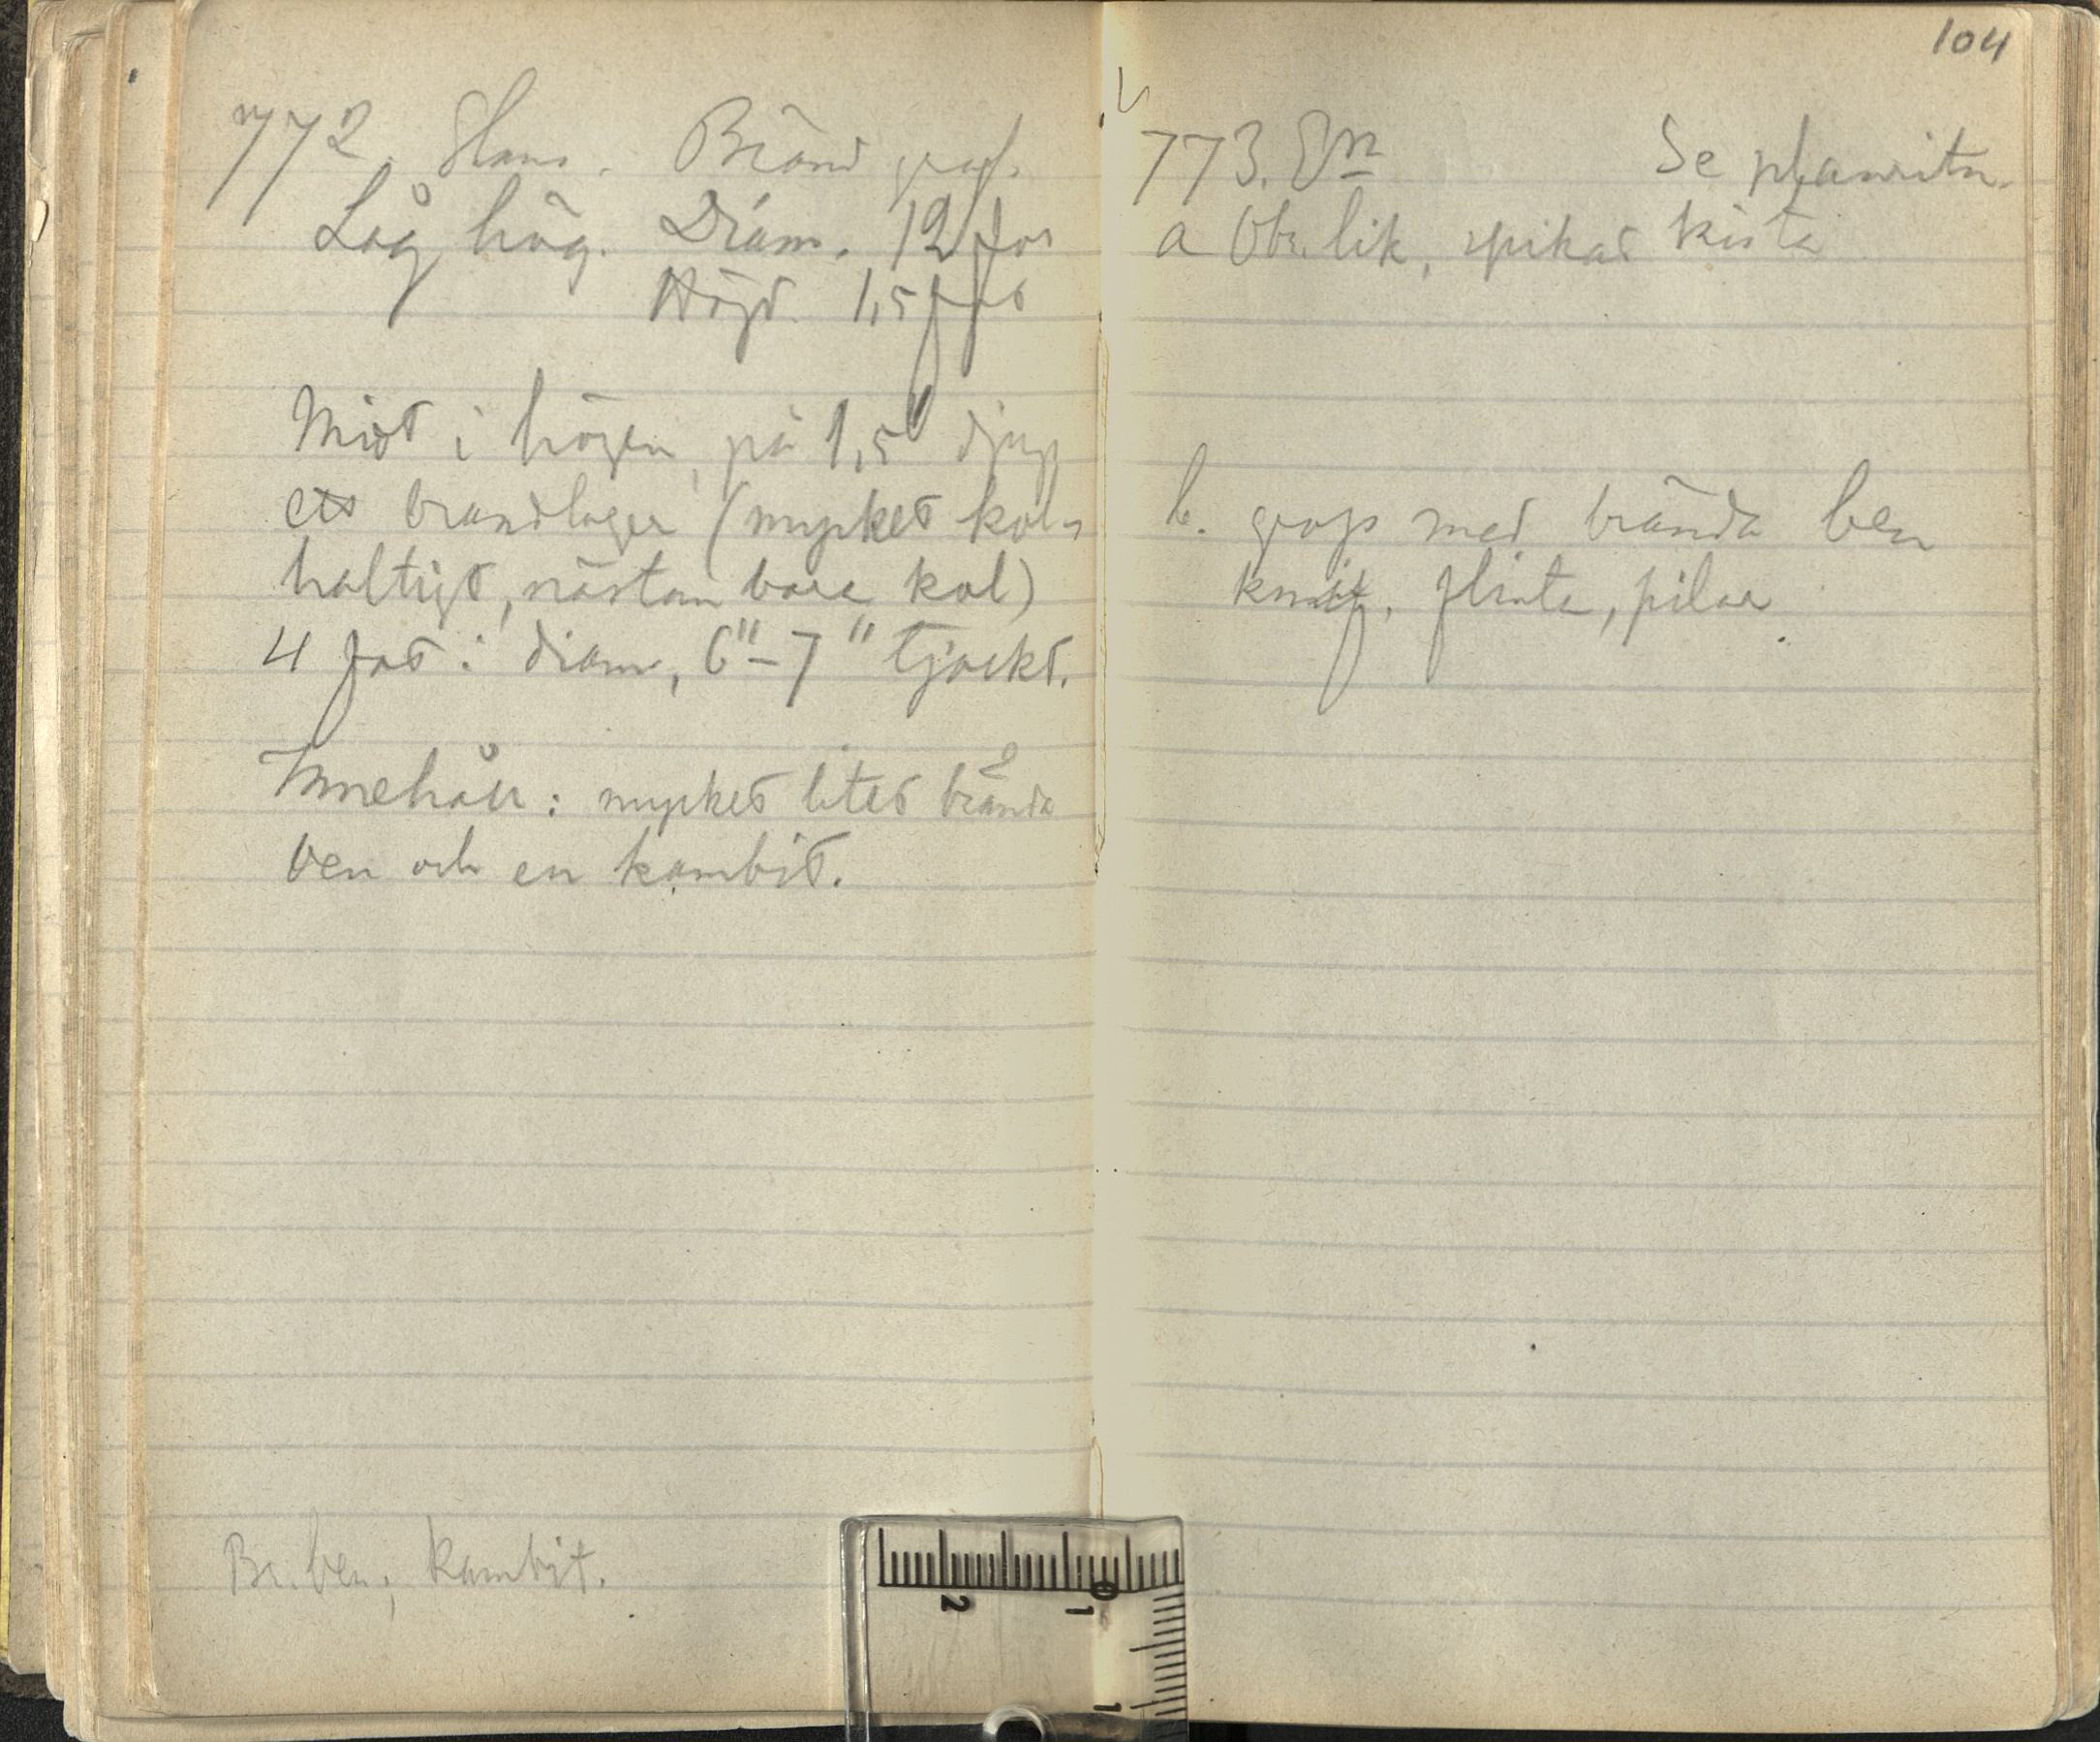 772. Hans. Bränd graf.
Låg hög. Diam. 12 fot
Höjd. 1,5 fot
Midt i högen, på 1,5' djup
ett brandlager (mycket kol-
haltigt, nästan bara kol)
4 fot i diam, 6"-7" tjockt.
Innehåll: mycket litet brända
ben och en kambit.
Br. ben; kambit.
104
773. Se planritn.
a Obr. lik, spikad kista
b. grop med brända ben
knif, flinta, pilar
2
1
0
1